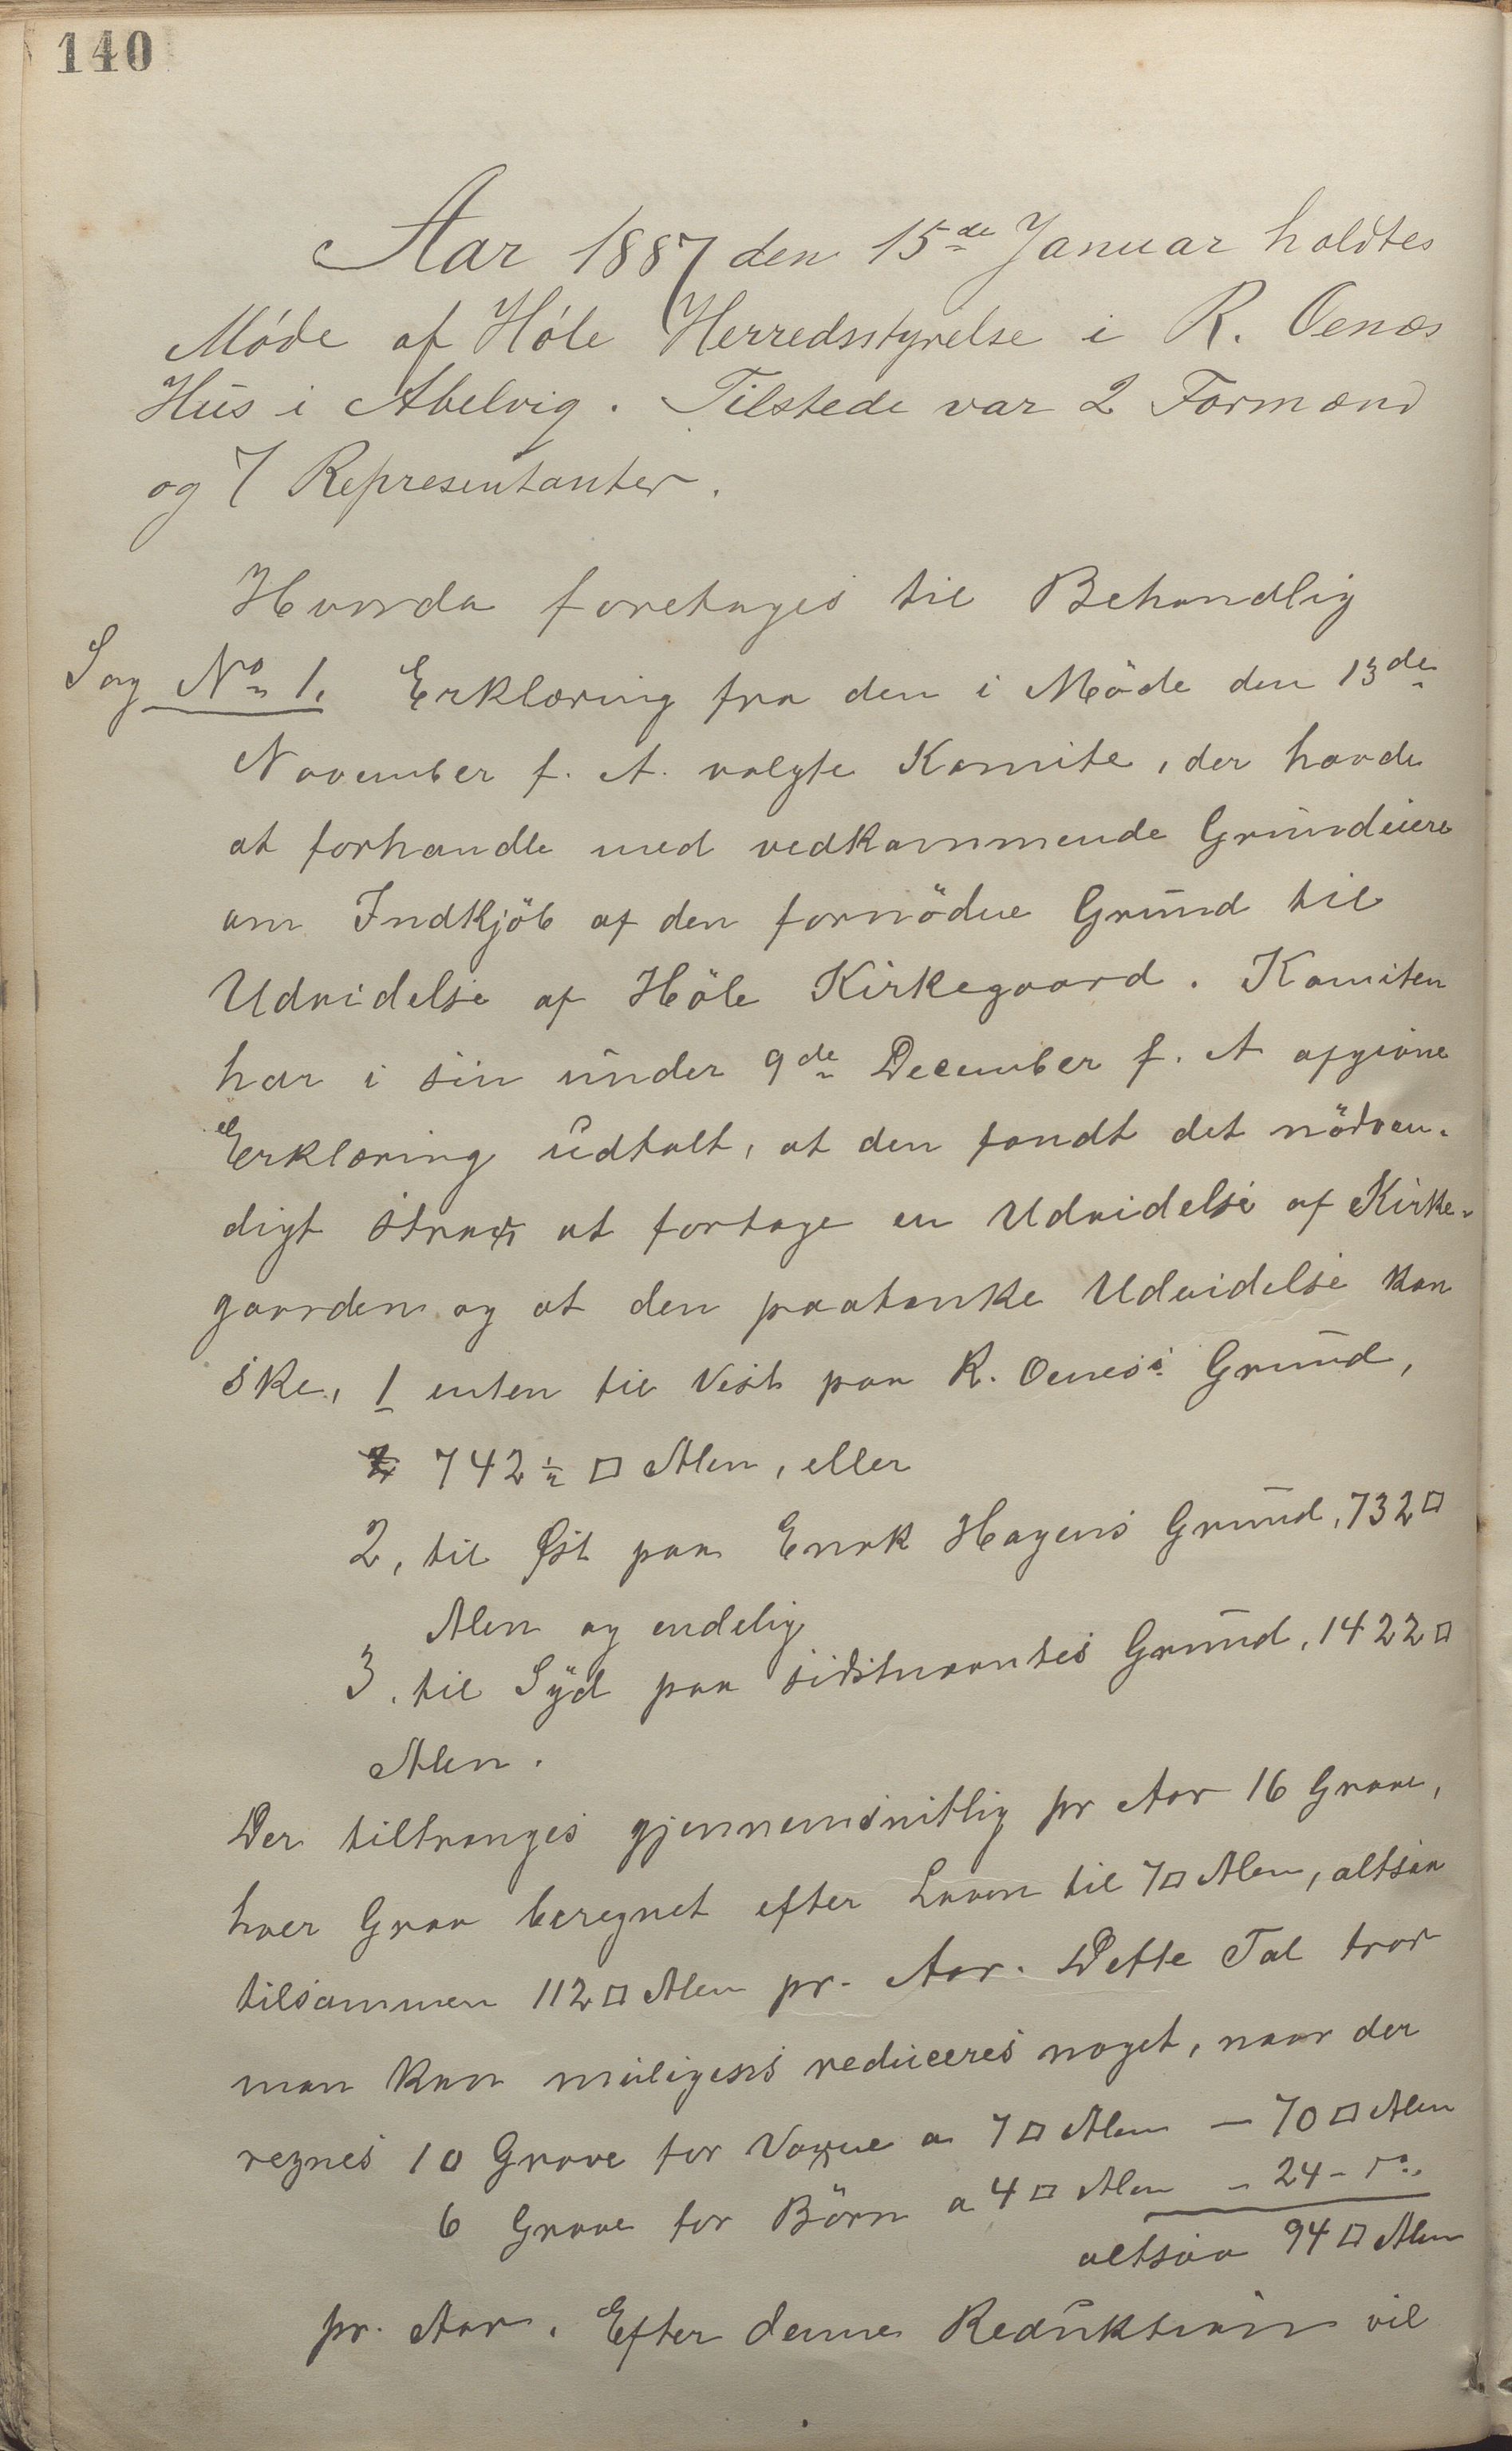 140
Aar 1887 den 15de Januar holdtes
Møde af Høle Herredsstyrelse i R. Oenæs
Hus i Abelvig. Tilstede var 2 Formænd
og 7 Repræsentanter.
Hvorda foretages til Behandlig
Sag No 1. Erklæring fra den i Möde den 13de
November f. A. valgte Komite, der havde
at forhandle med vedkommende Grundeiere
om Indkjöb af den fornödne Grund til
Udvidelse af Höle Kirkegaard. Komiten
har i sin under 9de December f. A afgivne
Erklæring udtalt, at den fandt det nödven-
digt strax at fortage en Udvidelse af Kirke-
gaarden og at den paatænke Udvidelse kan
ske, 1 enten til Vest paa R. Oenes's Grund,
742½ □ Alen, eller
2, til Øst paa Enok Hagens Grund, 732 □
Alen og endelig
3. til Syd paa sidstnævntes Grund, 1422 □
Alen.
Der tiltrænges gjennemsnitlig pr Aar 16 Grave,
hver Grav beregnet efter Loven til 7 □ Alen, altsaa
tilsammen 112 □ Alen pr. Aar. Dette Tal tror
man kan muligens reduceres noget, naar der
regnes 10 Grave for Voxne a 7 □ Alen — 70 □ Alen
6 Grave for Börn a 4 □ Alen - 24 - do.
altsaa 94 □ Alen
pr. Aar. Efter denne Reduktion vil